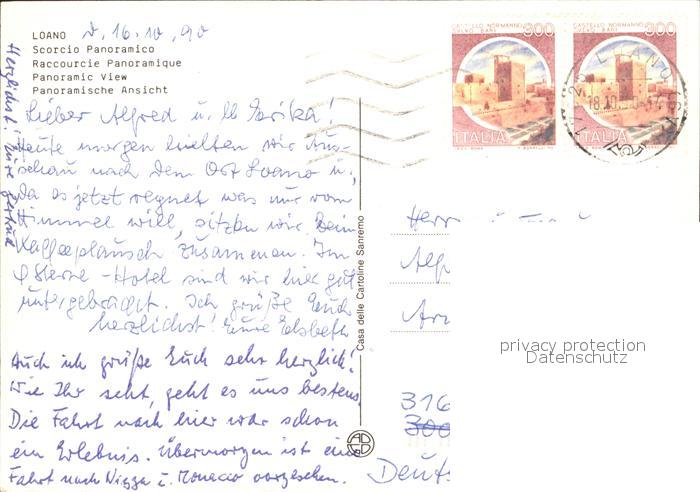 LOANO d. 16.10.90
Scorcio Panoramico
Raccourcie Panoramique
Panoramic View
Panoramische Ansicht
Lieber Alfred u. lb Erika!
Heute morgen hielten wir Aus-
schau nach dem Ort Loano u.
da es jetzt regnet was nur vom
Himmel will, sitzen wir beim
Kaffeeplausch zusammen. Im
4 Sterne-Hotel sind wir hier gut
untergebracht. Ich grüße Euch
herzlichst! Eure Elsbeth
Auch ich grüße Euch sehr herzlich!
Wie Ihr seht, geht es uns bestens.
Die Fahrt nach hier war schon
ein Erlebnis. Übermorgen ist eine
Fahrt nach Nizza u. Monacco vorgesehen.
Herzlichst! Eure Gertrud
Casa delle Cartoline Sanremo
CASTELLO NORMANNO
SVEVO BARI
300
ITALIA
CASTELLO NORMANNO
SVEVO BARI
300
ITALIA
18.10.90
Herr
Alf
316
300
Deut
privacy protection
Datenschutz